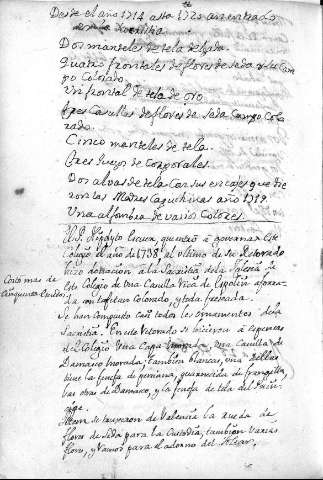 Desde el año 1714 asta 1725 an entrado
en la Sacristia.
Dos manteles de tela delgada.
Quatro frontales de flores de seda y de Cam
po Colorado.
Un frontal de tela de oro.
tres Casullas de flores de seda Campo Colo
rado.
Cinco manteles de tela.
tres Juegos de Corporales.
Dos alvas de tela con sus encajes que die
ron las Madres Capuchinas año 1719.
Una alfombra de varios Colores.
a governar este
Colegio el año de 1738, al ultimo de su Retorado
hizo donacion a la Sacristia de la Iglesia de
este Colegio de una Casulla Rica de Espolin aforra-
da con tafetan Colorado, y toda
Costo mas de
cinquenta escudos.
Se han compuesto casi todos los ornamentos de la
Sacristia. En este Retorado se hicieron a espensas
del Colegio una Capa morada, una Casulla de
Damasco morada, tambien blancas, una dellas
tiene la de persiana, guarnecida de
las otras de Damasco, y la de tela del
Item se truxeron de Valencia la rueda de
flores de seda para la Custodia, tambien varias
flores, y Ramos para el adorno del Altar.